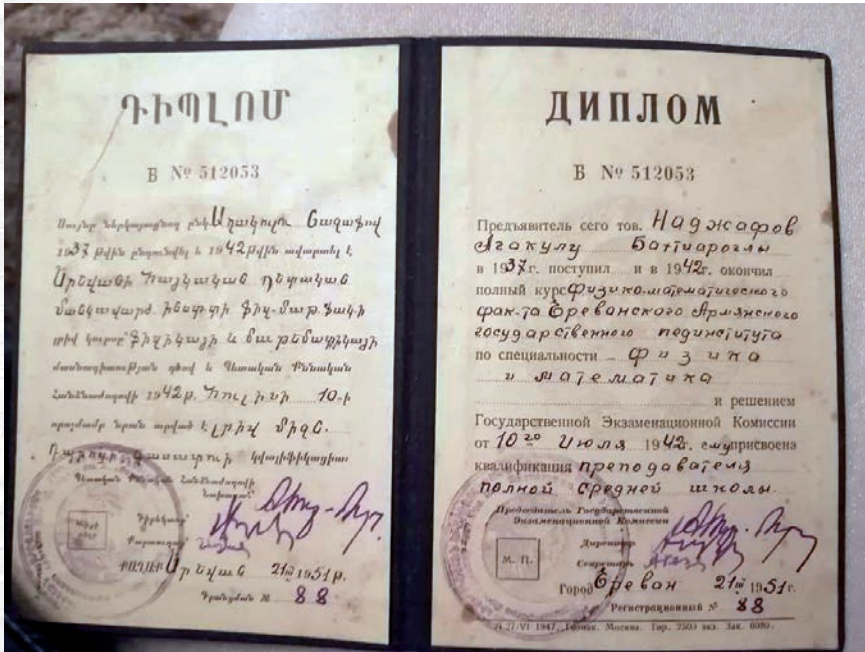 ԴԻՊԼՈՄ
Б № 512053
Սույնը ներկայացնող ընկ. Աղակուլու Նաջաֆով
1937 թվին ընդունվել և 1942 թվին ավարտել է
Արևանի Հայկական Պետական
Մանկավարժ. ինստ-ի ֆիզ-մաթ. ֆակ-ի
լրիվ կուրսը ֆիզիկայի և մաթեմատիկայի
մասնագիտության գծով և Պետական Քննական
Հանձնաժողովի 1942 թ. Հուլիսի 10-ի
որոշմամբ նրան տրված է լրիվ միջն.
Դպրոցի դասատուի կվալիֆիկացիա
Պետական Քննական Հանձնաժողովի
Նախագահ՝
Դիրեկտոր՝
Քարտուղար՝
ՔԱՂԱՔ Երևան 21 III 1951 թ.
Գրանցման № 88
ДИПЛОМ
Б № 512053
Предъявитель сего тов. Наджафов
Агакулу Бахтиароглы
в 1937 г. поступил и в 1942 г. окончил
полный курс физико-математического
фак-та Ереванского Армянского
государственного пединститута
по специальности физика
и математика
и решением
Государственной Экзаменационной Комиссии
от 10го Июля 1942 г. ему присвоена
квалификация преподавателя
полной средней школы.
Председатель Государственной
Экзаменационной Комиссии
Директор
Секретарь
М. П.
Город Ереван 21 III 1951 г.
Регистрационный № 88
27/VI 1947. Гознак. Москва. Тир. 2500 экз. Зак. 6080.